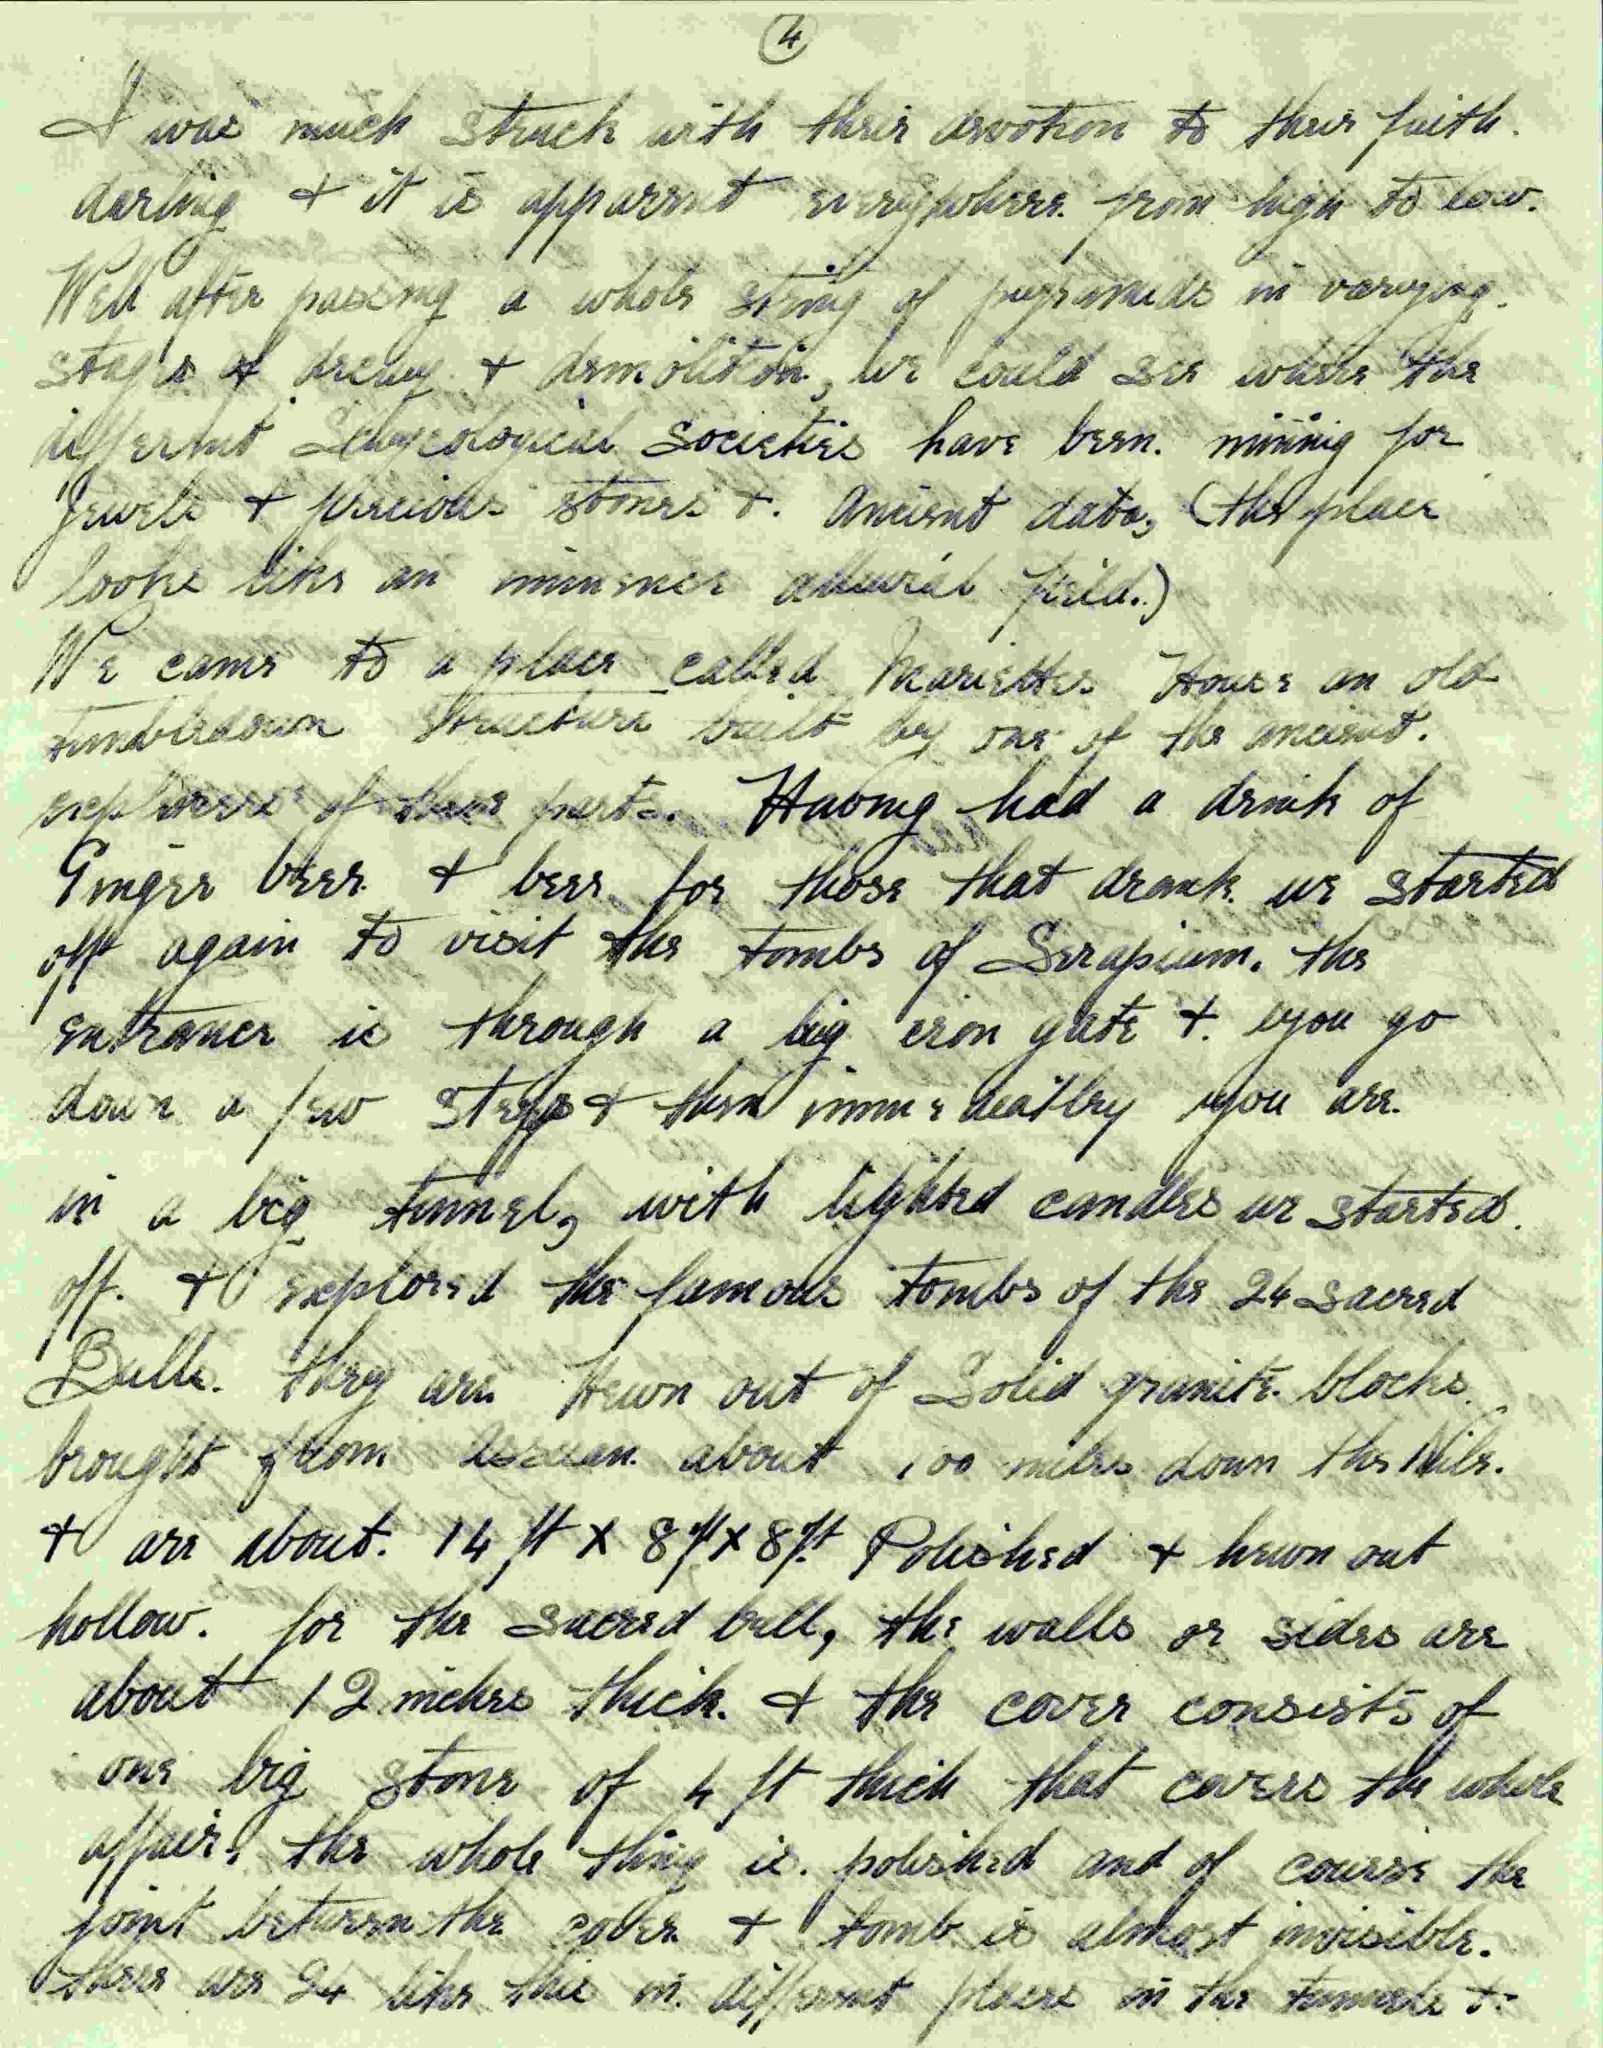 4
I was much struck with their devotion to their faith.
darling & it is apparent everywhere from high to low.
Well after passing a whole string of pyramids in varying
stages of decay & demolition, we could see where the
different societies have been mining for
jewels & precious stones & ancient data, (the place
looks like an immense alluvial field.)
We came to a place called Mariettes House an old
tumbledown structure built by one of the ancient.
explorers of these parts. Having had a drink of
Ginger beer & beer for those that drank we started
off again to visit the tombs of Serapium. the
entrance is through a big iron gate & you go
down a few steps & then you are.
in a big tunnel, with lighted candles we started.
off. & explored the famous tombs of the 24 sacred
Bulls. they are Hewn out of Solid granite blocks.
brought from Assuan about 100 miles down the Nile.
& are about. 14 ft X 8 ft X 8 ft Polished & hewn out
hollow. for the sacred bull, the walls or sides are
about 12 inches thick. & the cover consists of
one big stone of 4 ft thick that covers the whole
affair, the whole thing is. polished and of course the
joint between the cover & tomb is almost invisible.
there are 24 like this in different places in the tunnels &